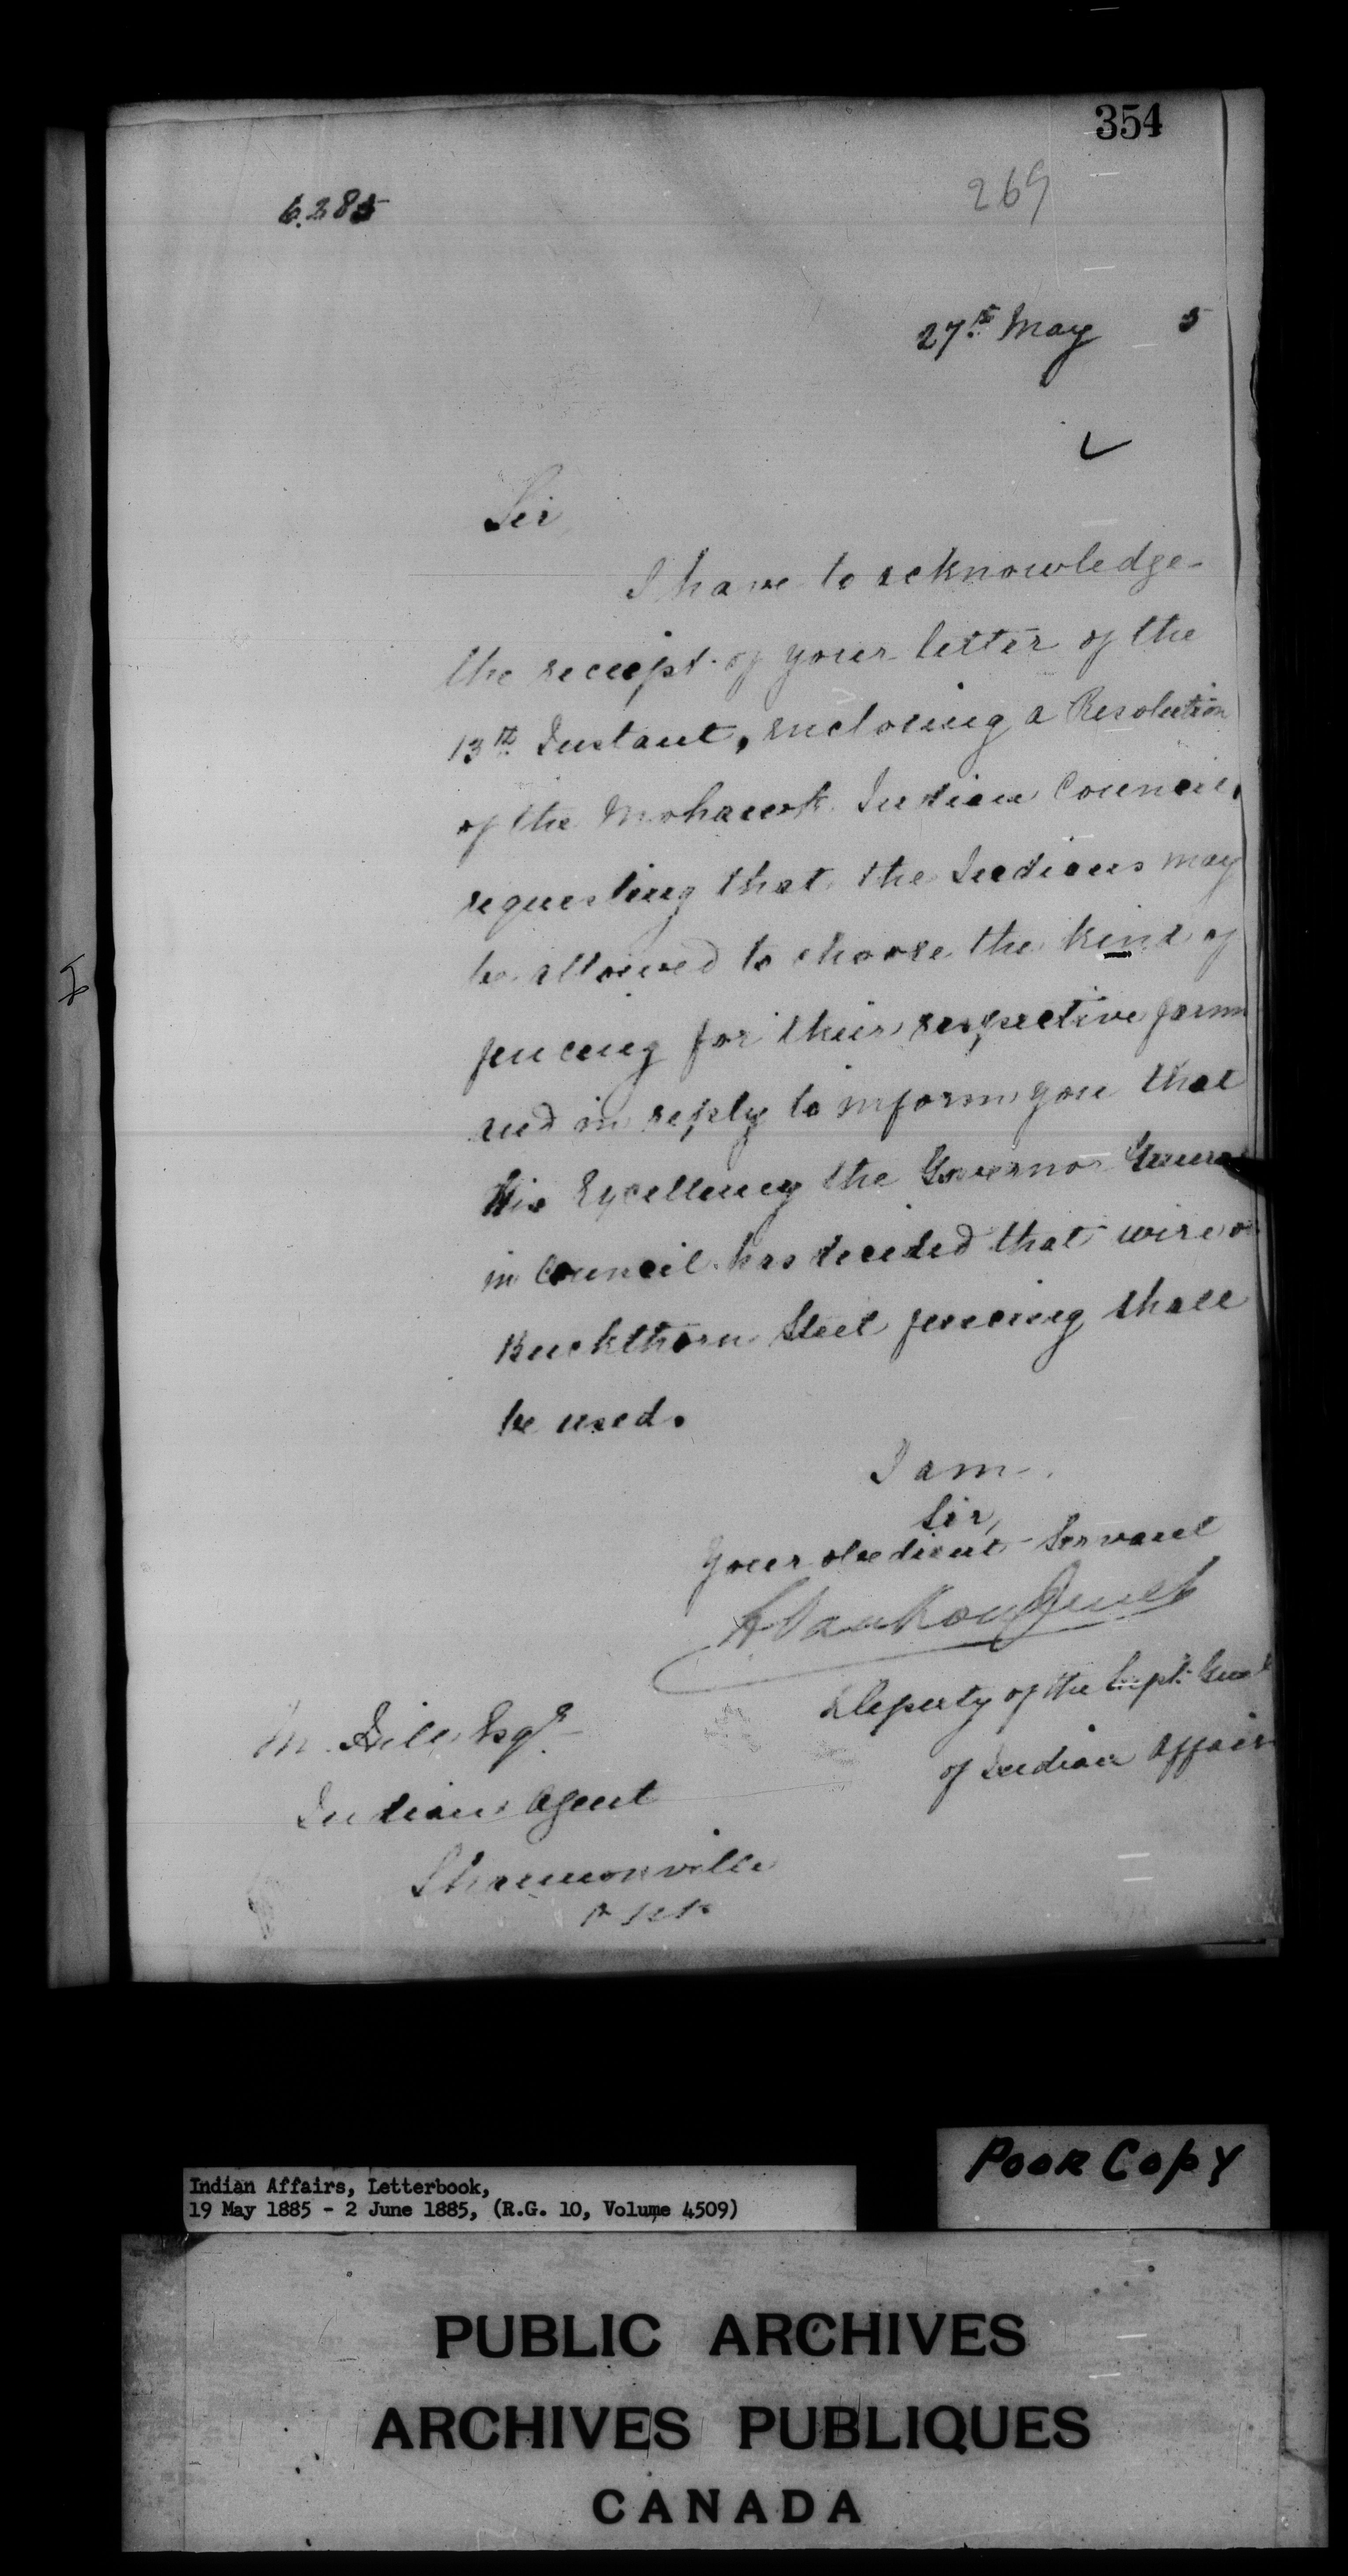 354
269
6.285
27th May 5
Sir
I have to acknowledge
the receipt of your letter of the
13th Instant, enclosing a Resolution
of the Mohawk Indian Council,
requesting that the Indians may
be allowed to choose the kind of
fencing for their respective farms
and in reply to inform you that
His Excellency the Governor General
in Council has decided that wire or
Buckthorn Steel fencing shall
be used.
I am
Sir,
Your obedient Servant
L VanKoughnet
Deputy of the Supt. Genl
of Indian Affairs
M. Hill Esqr
Indian Agent
Shannonville
Ont
Poor Copy
Indian Affairs, Letterbook,
19 May 1885 - 2 June 1885, (R.G. 10, Volume 4509)
PUBLIC ARCHIVES
ARCHIVES PUBLIQUES
CANADA